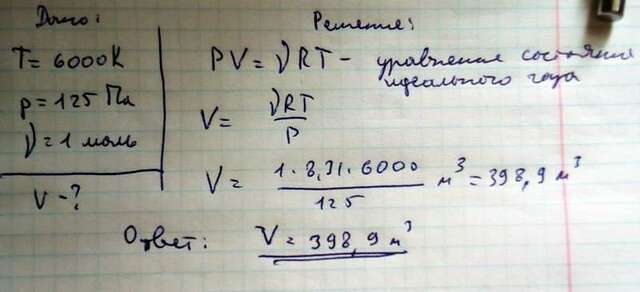 Дано:
T = 6000K
p = 125 Па
ν = 1 моль
V - ?
Решение:
PV = νRT - уравнение состояния
идеального газа
V = νRT / P
V = 1·8,31·6000 / 125 м³ = 398,9 м³
Ответ: V = 398,9 м³